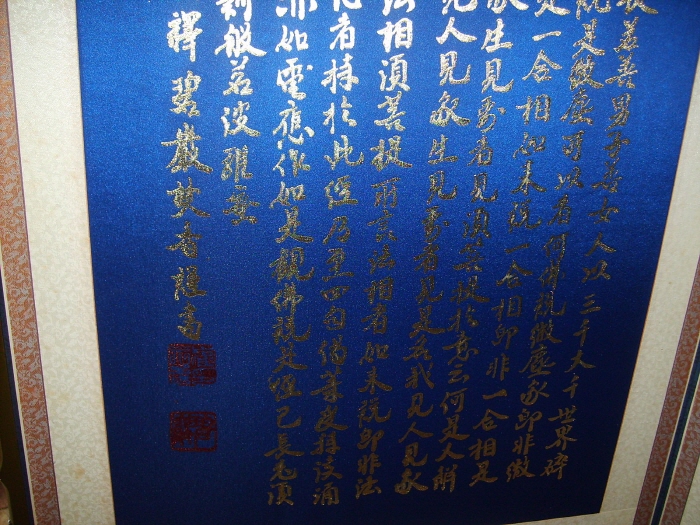 若善男子善女人以三千大千世界碎
是微塵所以者何佛說微塵眾即非微
一合相如來說一合相即非一合相是
眾生見壽者見須菩提於意云何是人解
見人見眾生見壽者見是名我見人見眾
法相須菩提所言法相者如來說即非法
心者持於此經乃至四句偈等受持讀誦
亦如電應作如是觀佛說是經已長老須
剛般若波羅蜜
釋碧巖焚香謹書